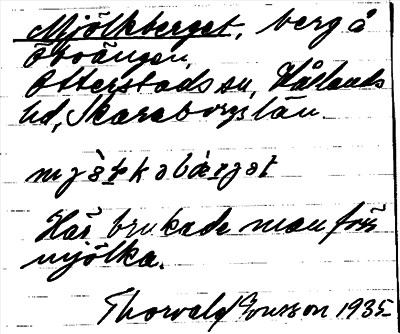 Mjölkberget, berg å
Åboängen,
Otterstads sn, Kållands
hd, Skaraborgs län.
mjö̀ɫkəbæ̀rjət
Här brukade man förr
mjölka.
Thorvald Jonsson 1935